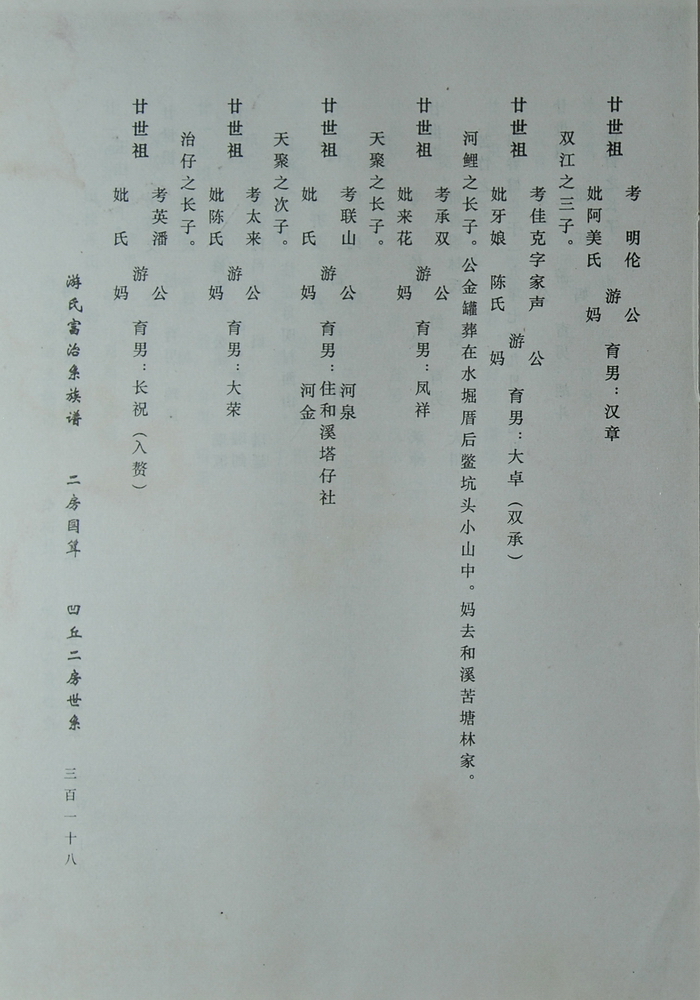 廿世祖 考 明伦 公
妣阿美氏 游 妈 育男：汉章
双江之三子。
廿世祖 考佳克字家声 公
妣牙娘 陈氏 游 妈 育男：大卓（双承）
河鲤之长子。公金罐葬在水堀厝后鳖坑头小山中。妈去和溪苦塘林家。
廿世祖 考承双 公
妣来花 游 妈 育男：凤祥
天聚之长子。
廿世祖 考联山 公 河泉
妣 氏 游 妈 育男：住和溪塔仔社 河金
天聚之次子。
廿世祖 考太来 公
妣陈氏 游 妈 育男：大荣
治仔之长子。
廿世祖 考英潘 公
妣 氏 游 妈 育男：长祝（入赘）
游氏富治系族谱 二房国算 凹丘二房世系 三百一十八